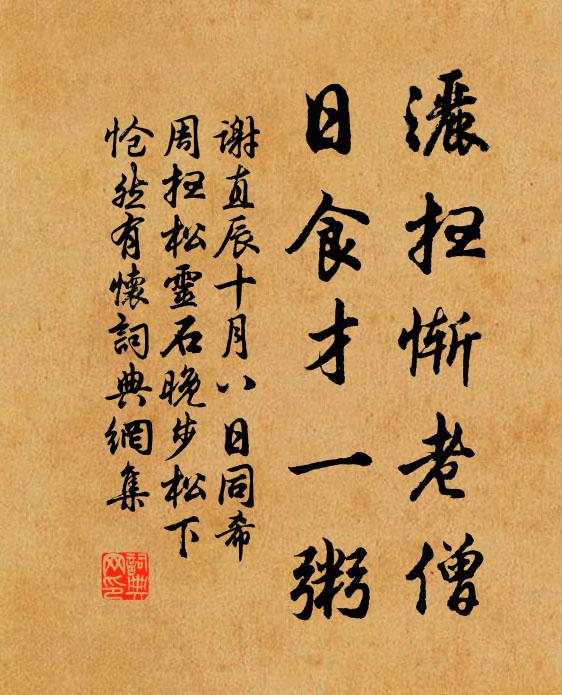 灑扫慚老僧
日食才一粥
谢直辰十月八日同希
周扫松靈石晚步松下
怆然有懷詞典網集
詞典网印